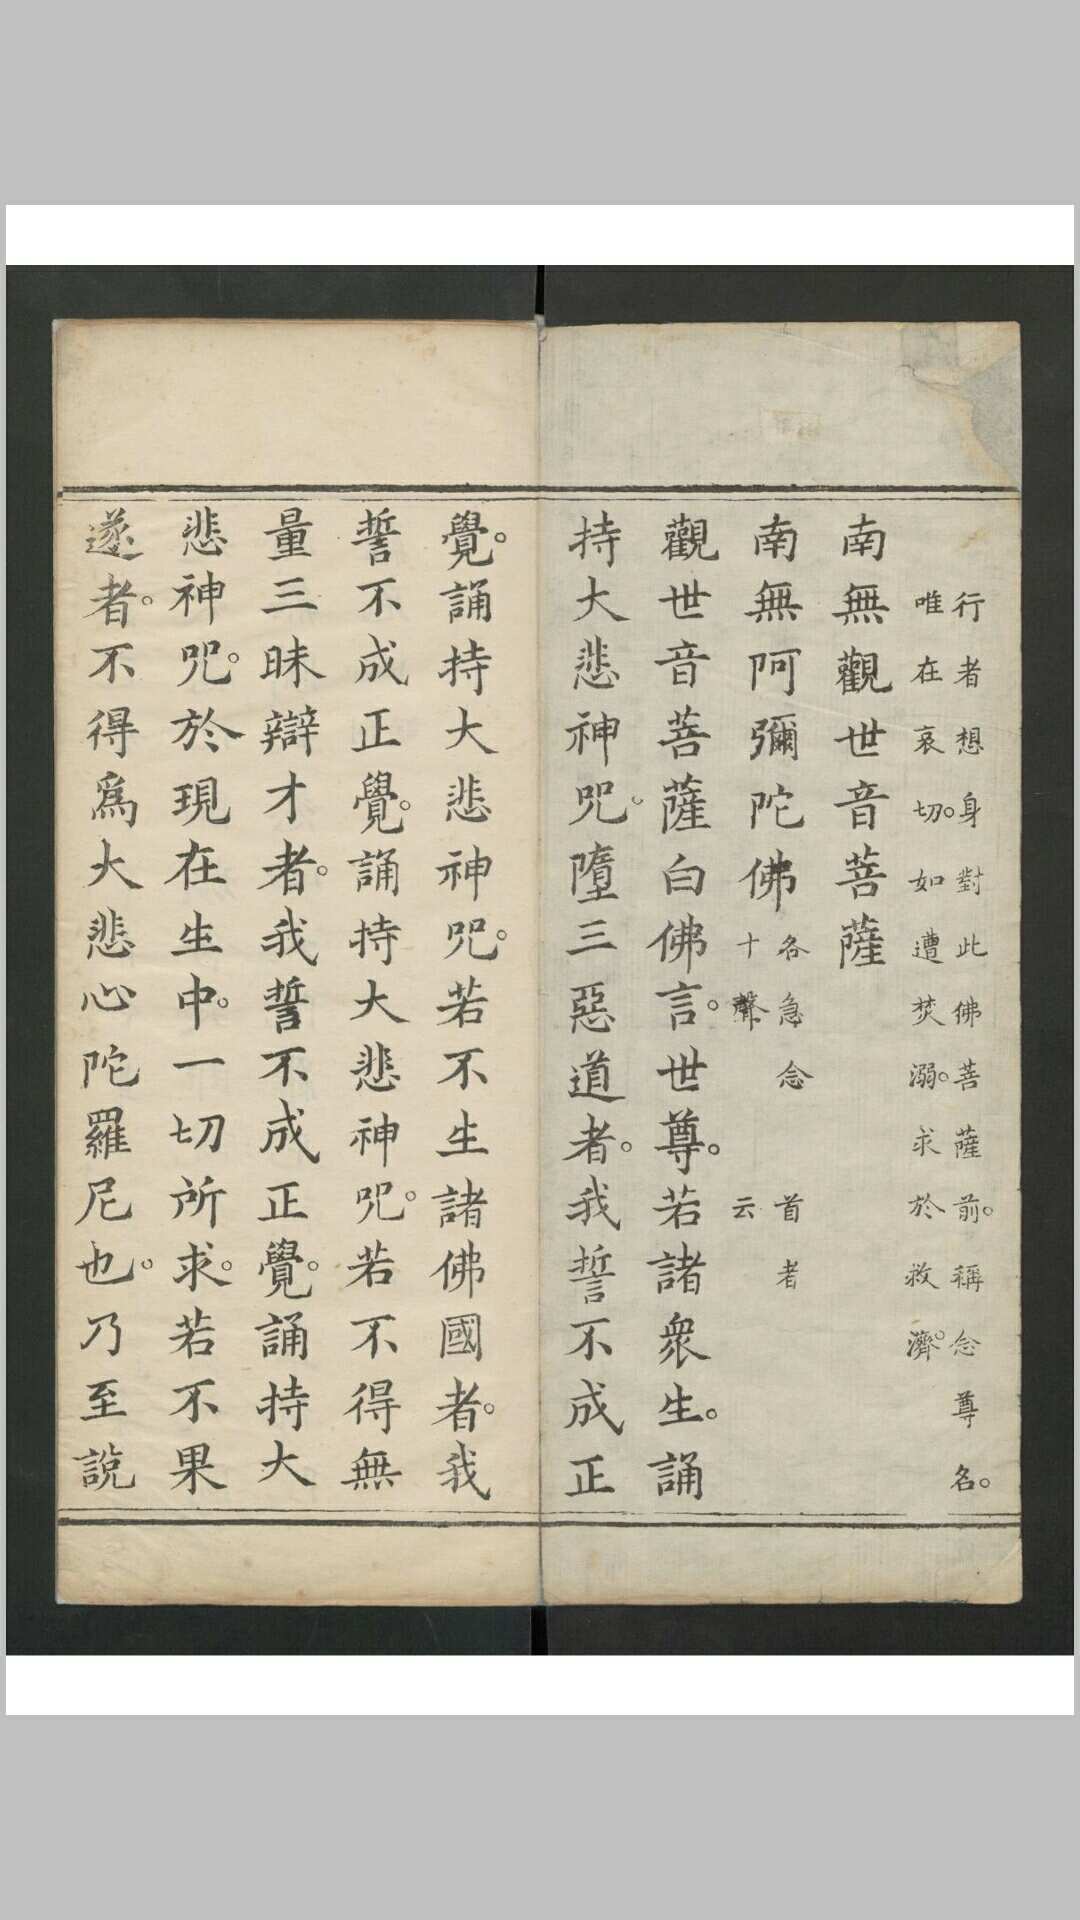 行者想身對此佛菩薩前。稱念尊名。
唯在哀切。如遭焚溺。求於救濟。
南無觀世音菩薩
南無阿彌陀佛
各急念
十聲
首者
云
觀世音菩薩白佛言。世尊。若諸衆生。誦
持大悲神咒。墮三惡道者。我誓不成正
覺。誦持大悲神咒。若不生諸佛國者。我
誓不成正覺。誦持大悲神咒。若不得無
量三昧辯才者。我誓不成正覺。誦持大
悲神咒。於現在生中。一切所求。若不果
遂者。不得爲大悲心陀羅尼也。乃至說